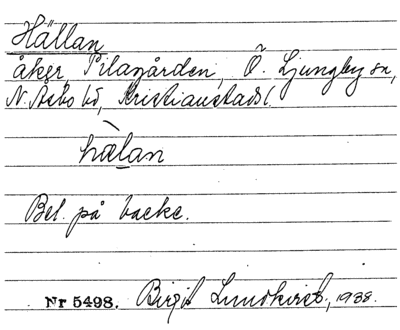 Hällan
åker, Pilagården, Ö. Ljungby sn,
N. Åsbo hd, Kristianstads l.
hælan
Bel. på backe.
Nr 5498. Birgit Lundkvist, 1938.